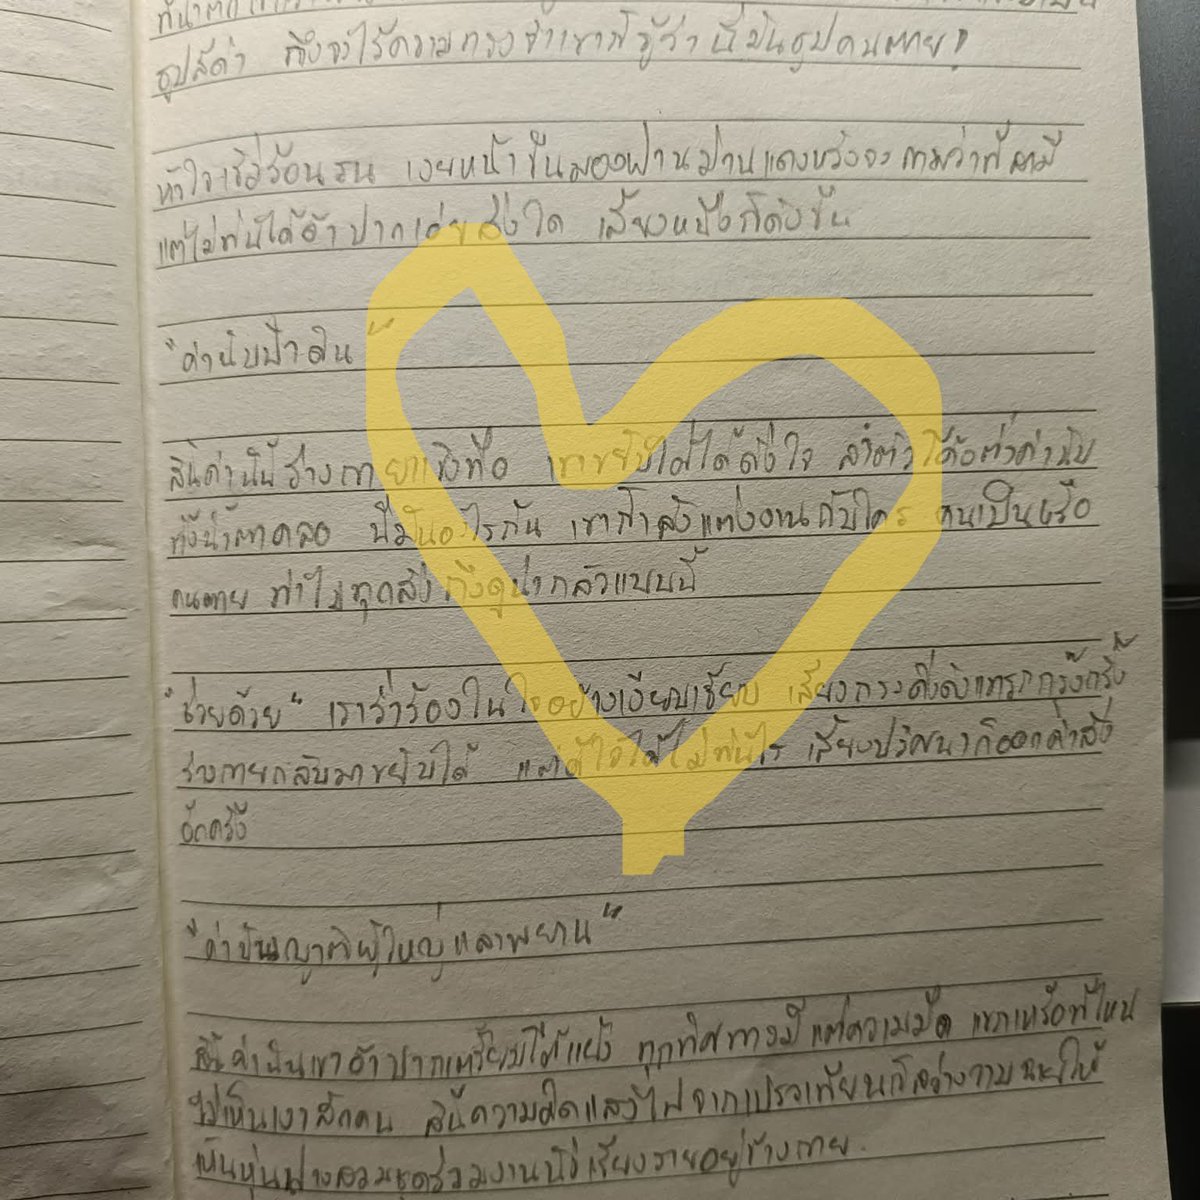 ธูปสีดำ ถึงจะไร้ความทรงจำเขาก็รู้ว่านี่มันธูปคนตาย!
หัวใจเริ่มร้อนรน เงยหน้าขึ้นมองผ่านม่านแดงหวังจะถามว่าที่สามี
แต่ไม่ทันได้อ้าปากเอ่ยสิ่งใด เสียงหนึ่งก็ดังขึ้น
"คำนับฟ้าดิน"
สิ้นคำนั้นร่างกายแข็งทื่อ เขาขยับไม่ได้ดั่งใจ ลำตัวโค้งต่ำคำนับ
ทั้งน้ำตาคลอ นี่มันอะไรกัน เขากำลังแต่งงานกับใคร คนเป็นหรือ
คนตาย ทำไมทุกสิ่งถึงดูน่ากลัวแบบนี้
"ช่วยด้วย" เราร่ำร้องในใจอย่างเงียบเชียบ เสียงกระดิ่งดังแทรกกรุ๊งกริ๊ง
ร่างกายกลับมาขยับได้ แต่ดีใจได้ไม่ทันไร เสียงปริศนาก็ออกคำสั่ง
อีกครั้ง
"คำนับญาติผู้ใหญ่และพยาน"
สิ้นคำนั้นเขาอ้าปากเตรียมโต้แย้ง ทุกทิศทางมีแต่ความมืด แขกเหรื่อที่ไหน
ไม่เห็นเงาสักคน สิ้นความคิดแสงไฟจากเปลวเทียนก็สว่างวาบฉายให้
เห็นหุ่นฟางสวมชุดร่วมงานนั่งเรียงรายอยู่ข้างกาย.